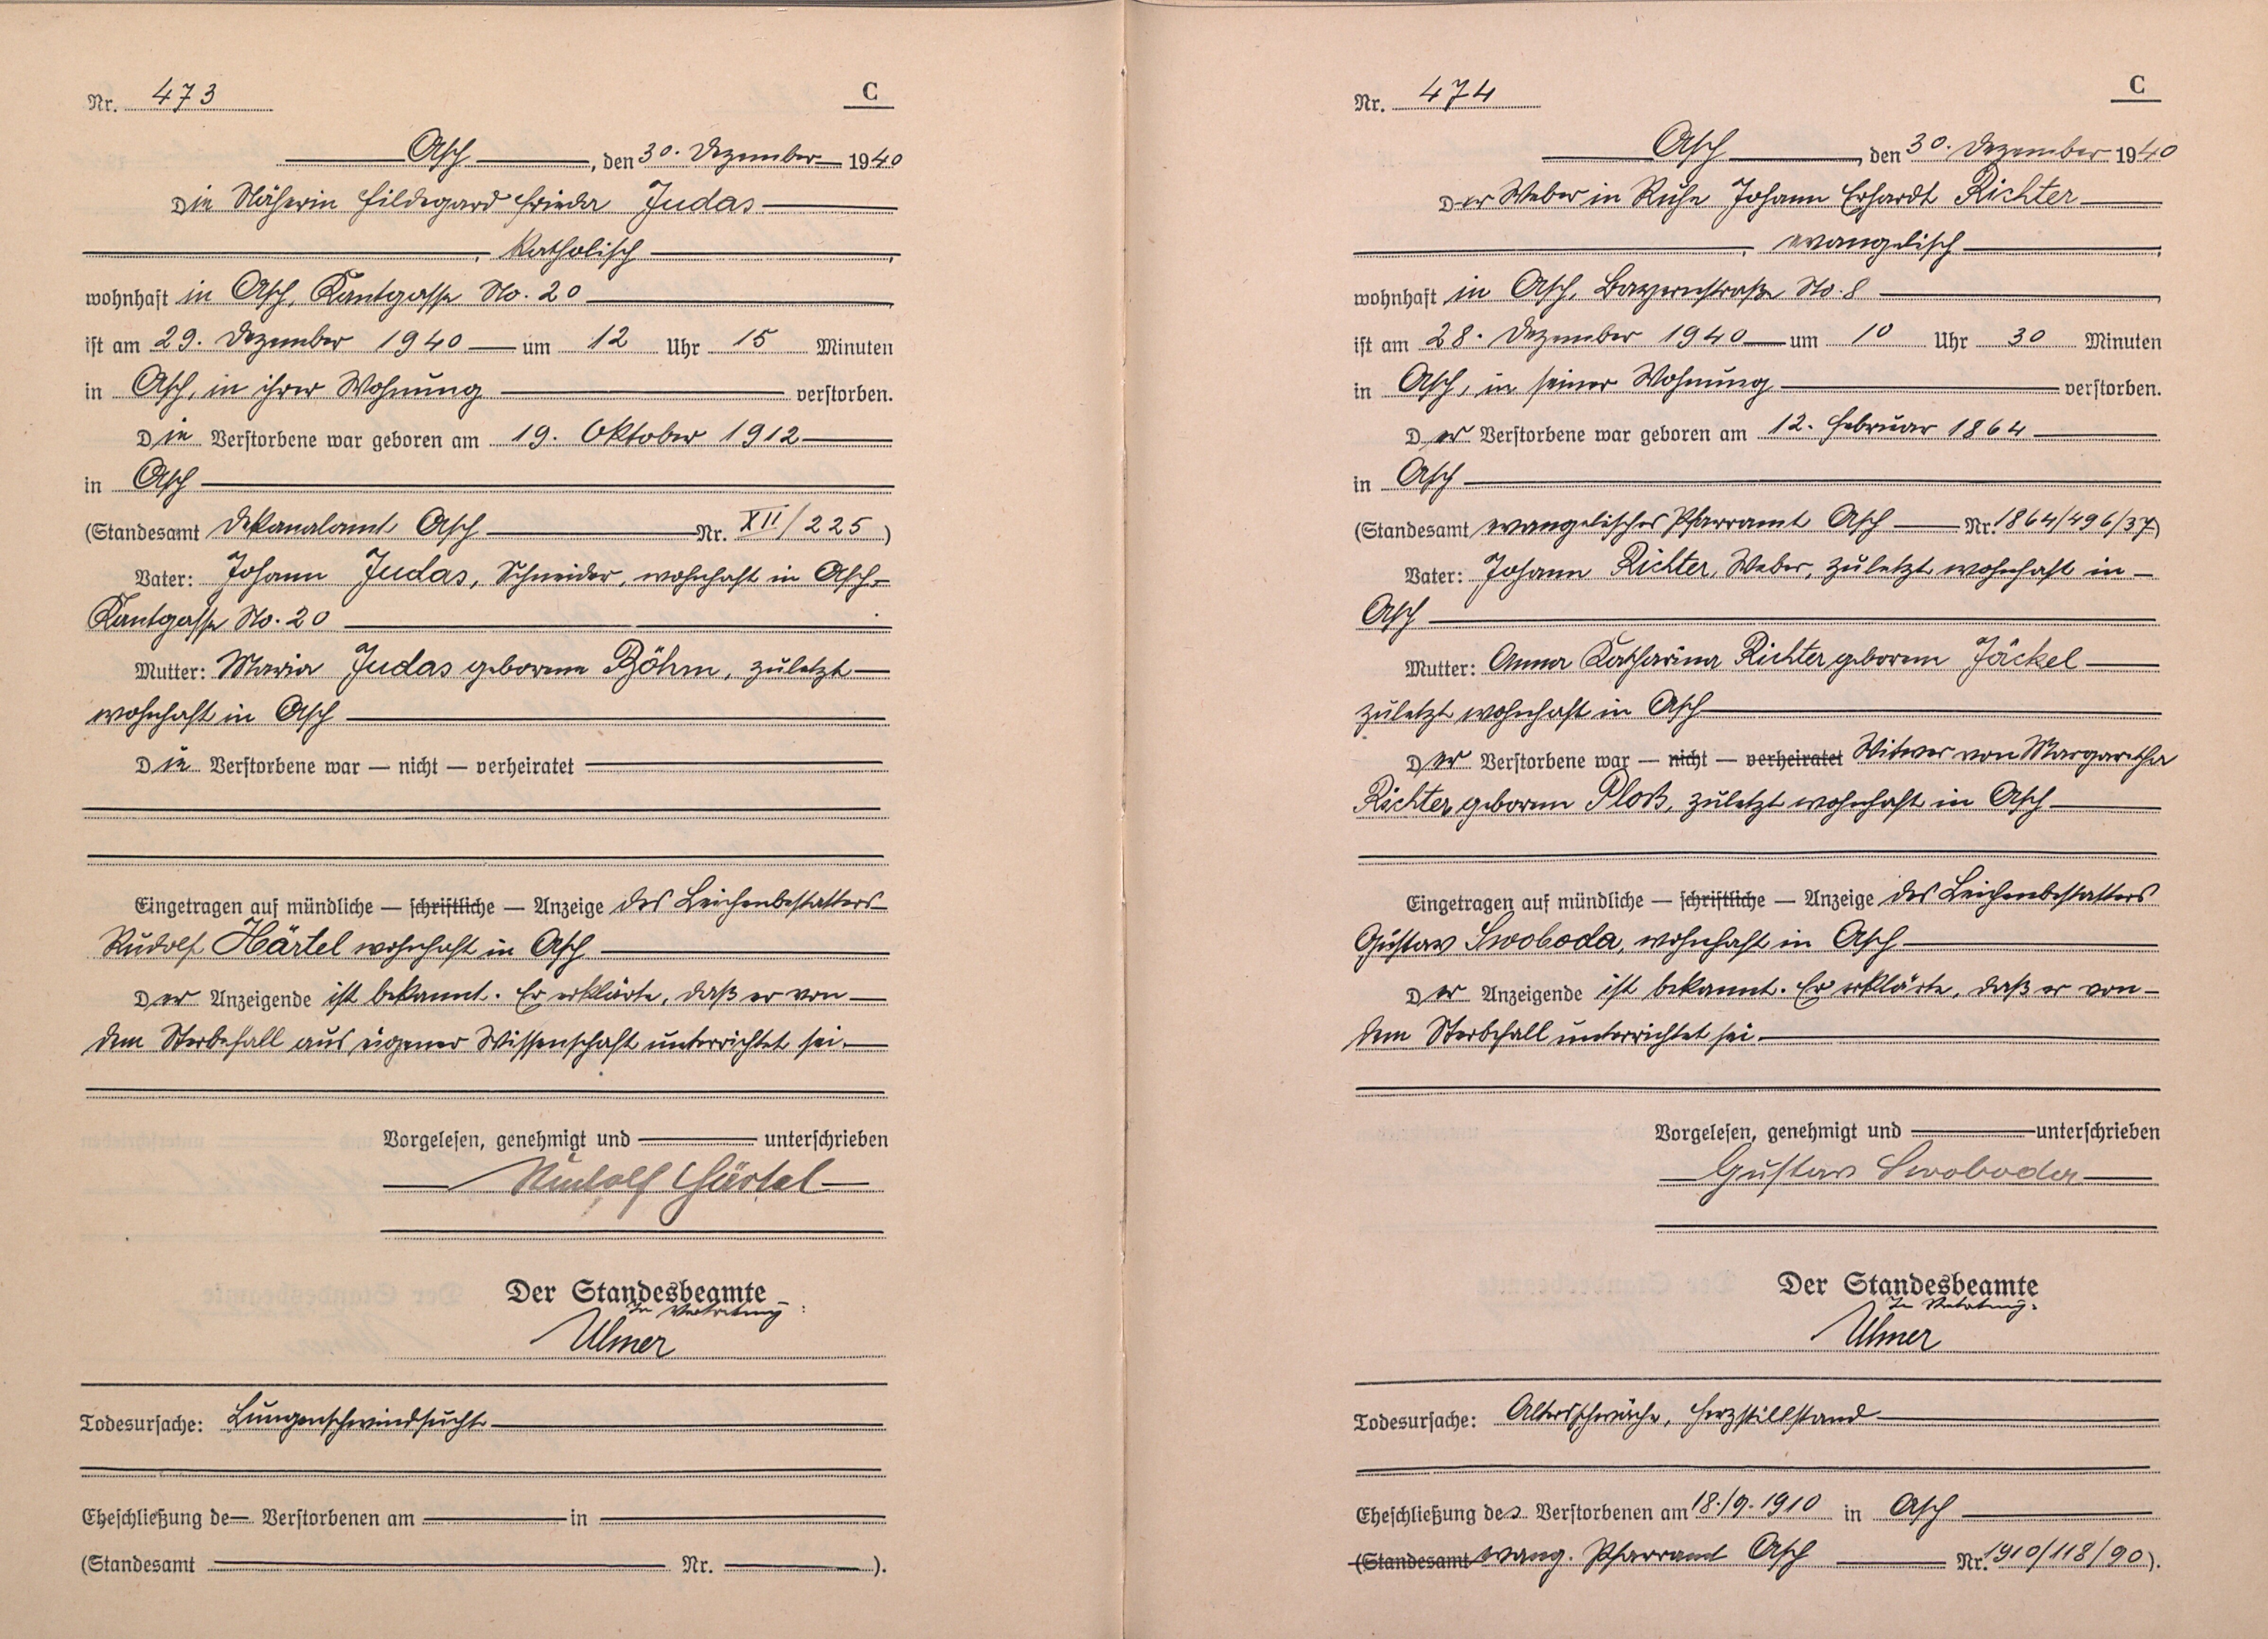 Nr. 473
C
Asch, den 30. Dezember 1940
Die Näherin Hildegard Frieda Judas
, katholisch,
wohnhaft in Asch, Kantgasse No. 20,
ist am 29. Dezember 1940 um 12 Uhr 15 Minuten
in Asch, in ihrer Wohnung verstorben.
Die Verstorbene war geboren am 19. Oktober 1912
in Asch
(Standesamt Dekanalamt Asch Nr. XII/225)
Vater: Johann Judas, Schneider, wohnhaft in Asch
Kantgasse No. 20
Mutter: Maria Judas geborene Böhm, zuletzt
wohnhaft in Asch
Die Verstorbene war — nicht — verheiratet
Eingetragen auf mündliche — schriftliche — Anzeige des Leichenbestatters
Rudolf Härtel wohnhaft in Asch
Der Anzeigende ist bekannt. Er erklärte, daß er von
dem Sterbefall aus eigener Wissenschaft unterrichtet sei.
Vorgelesen, genehmigt und unterschrieben
Rudolf Härtel
Der Standesbeamte
In Vertretung:
Ulmer
Todesursache: Lungenschwindsucht
Eheschließung de Verstorbenen am in
(Standesamt Nr. ).
Nr. 474
C
Asch, den 30. Dezember 1940
Der Weber in Ruhe Johann Erhardt Richter
, evangelisch,
wohnhaft in Asch, Bayernstraße No. 8,
ist am 28. Dezember 1940 um 10 Uhr 30 Minuten
in Asch, in seiner Wohnung verstorben.
Der Verstorbene war geboren am 12. Februar 1864
in Asch
(Standesamt evangelisches Pfarramt Asch Nr. 1864/496/37)
Vater: Johann Richter, Weber, zuletzt wohnhaft in
Asch
Mutter: Anna Katharina Richter geborene Jäckel
zuletzt wohnhaft in Asch
Der Verstorbene war — nicht — verheiratet Witwer von Margaretha
Richter geborene Ploß, zuletzt wohnhaft in Asch
Eingetragen auf mündliche — schriftliche — Anzeige des Leichenbestatters
Gustav Swoboda, wohnhaft in Asch
Der Anzeigende ist bekannt. Er erklärte, daß er von
dem Sterbefall unterrichtet sei.
Vorgelesen, genehmigt und unterschrieben
Gustav Swoboda
Der Standesbeamte
In Vertretung:
Ulmer
Todesursache: Altersschwäche, Herzstillstand
Eheschließung des Verstorbenen am 18./9. 1910 in Asch
(Standesamt evang. Pfarramt Asch Nr. 1910/118/90).